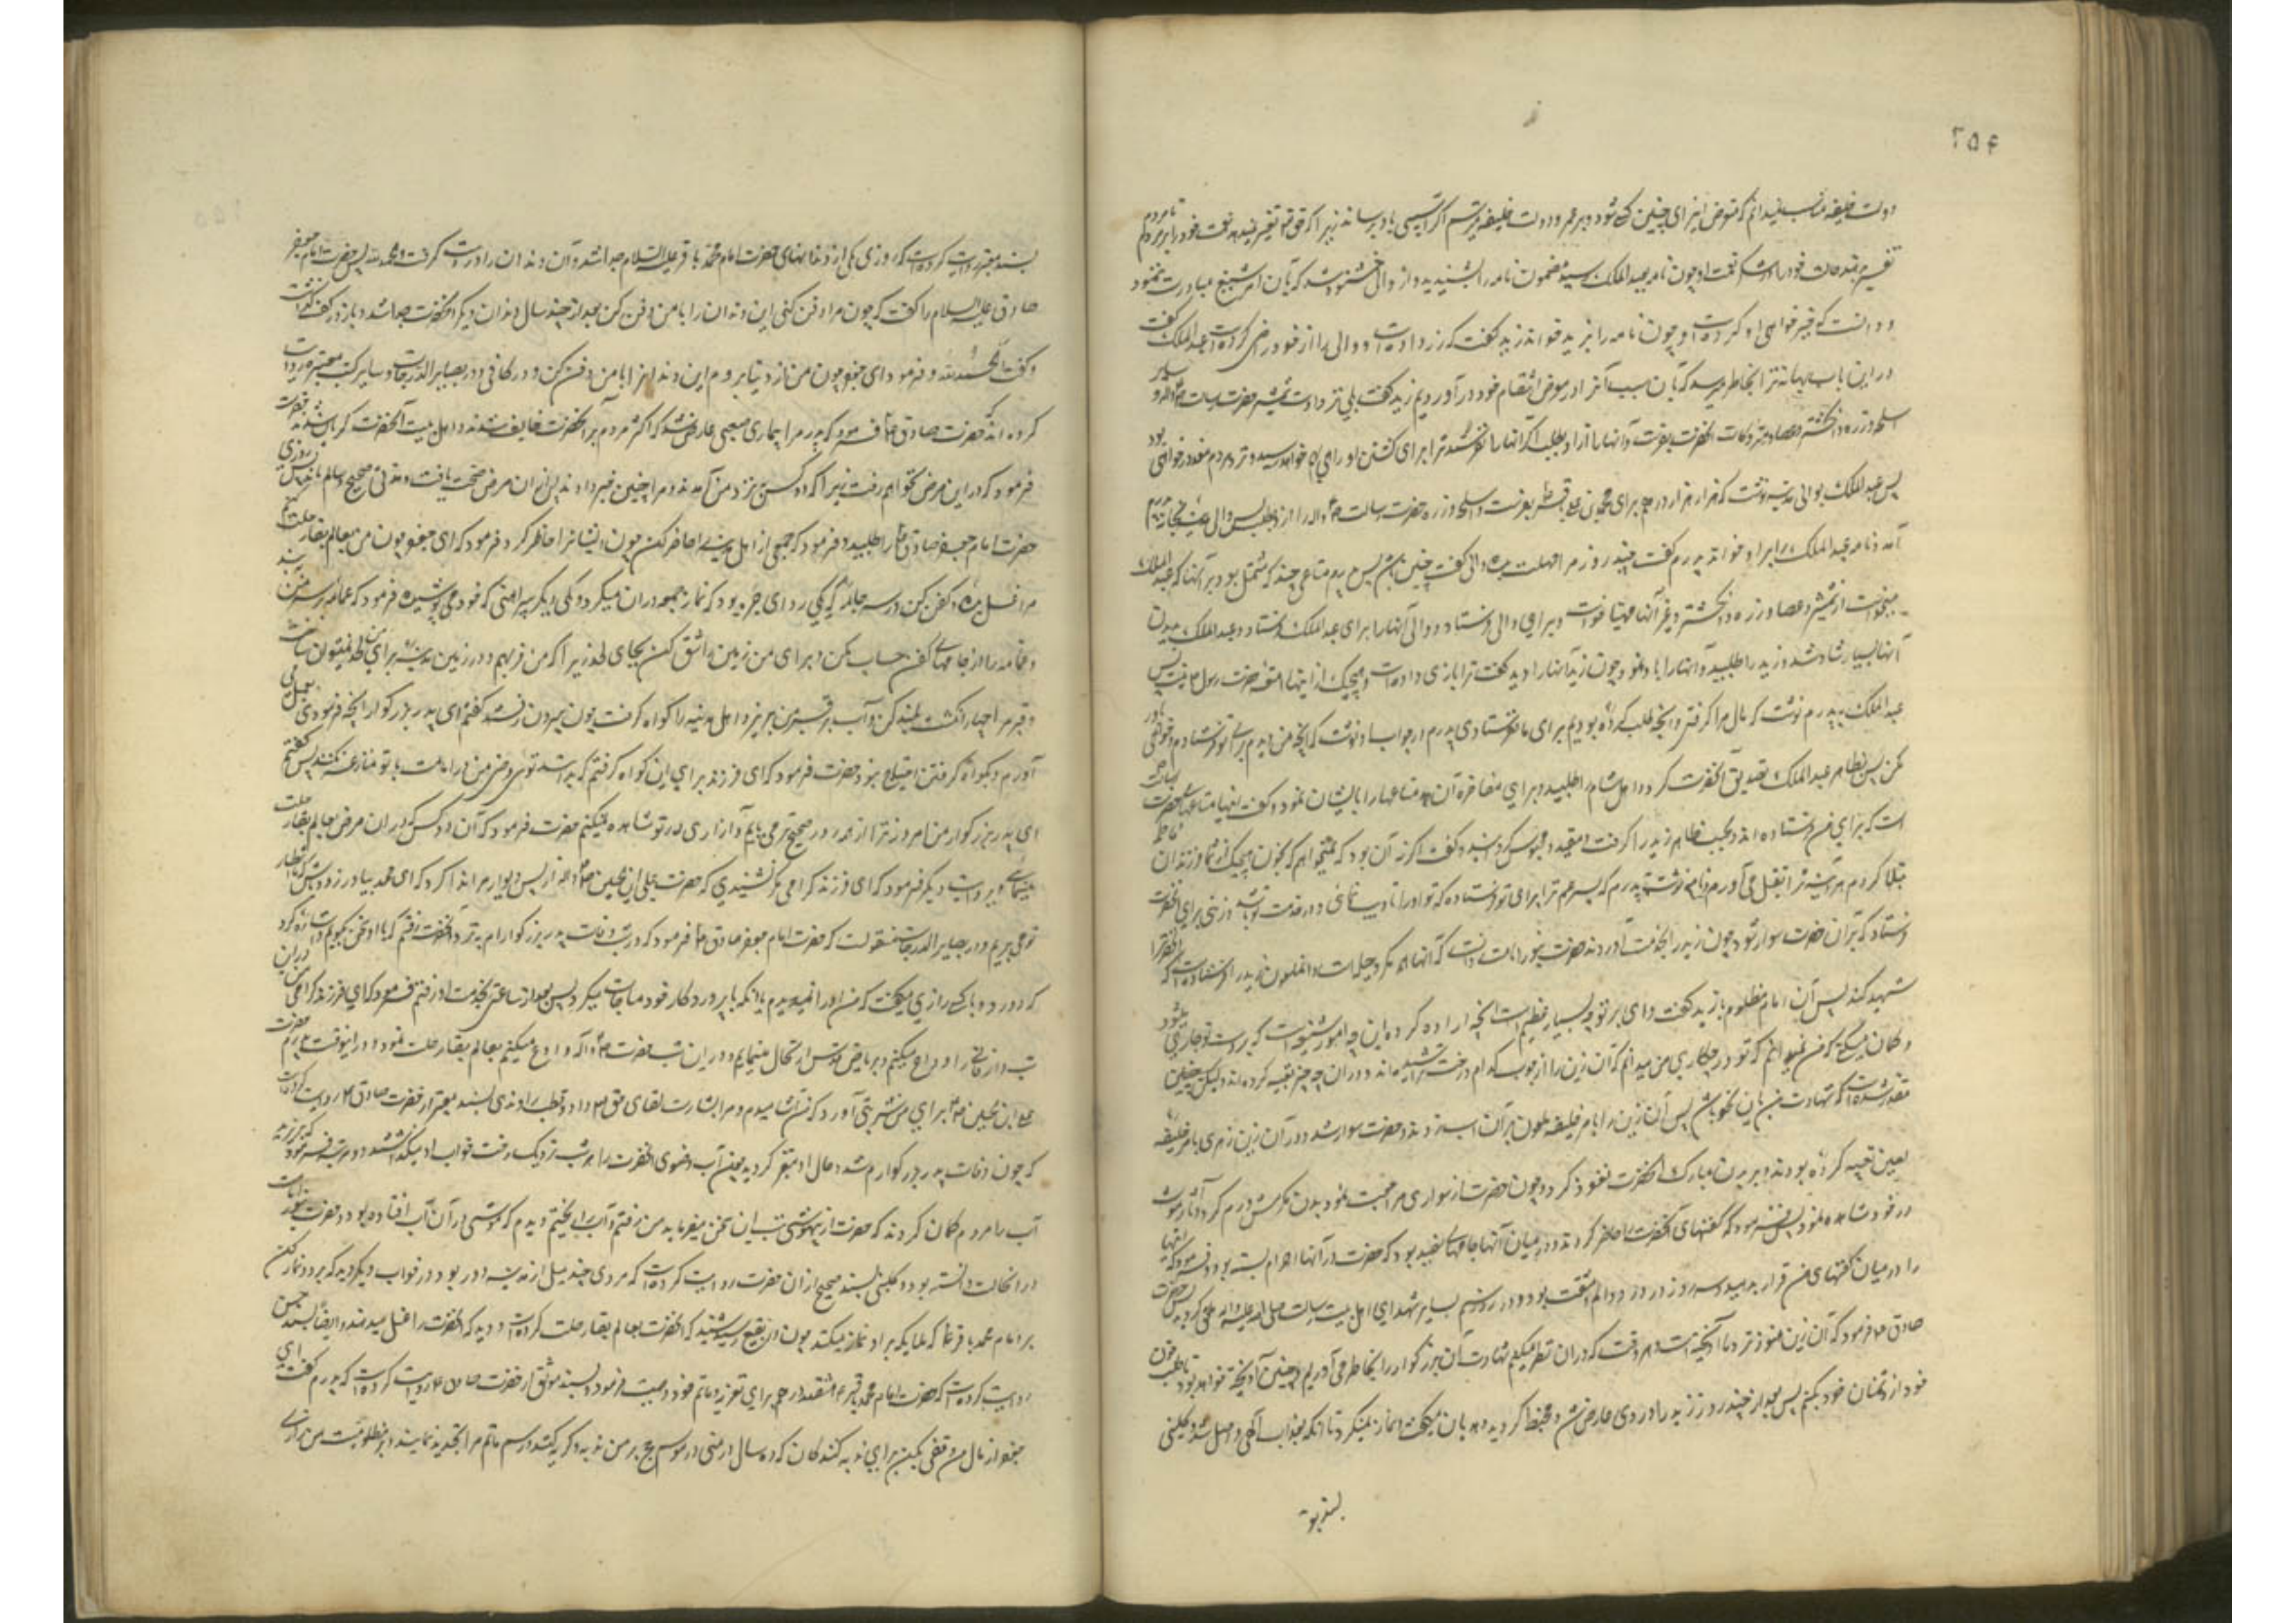 ۲۵۴
دولت خلیفه مناسب نمیدانم که متعرض ایذای چنین کسی شود و بر عمر و دولت خلیفه میترسم اگر آسیبی باو برساند زیرا که حق تعالی تغییر نمیدهد نعمت خود را بر مردم تا مردم
تغییر ندهند حالت خود را در شکر نعمت او چون نامه بعبد الملک رسید مضمون نامه را پسندید و از والی خشنود شد که بآن امر شنیع مبادرت ننمود
و دانست که خیرخواهی او کرده است و چون نامه را بزید خواند زید گفت که زر داده است و والی را از خود راضی کرده است عبد الملک گفت
در این باب بهانه‌ای ترا بخاطر میرسد که بآن سبب او را در معرض انتقام خود در آوردیم زید گفت بلی نزد اوست شمشیر حضرت رسالت و سایر
اسلحه و زره و انگشتر و عصا و متروکات آنحضرت بفرست و آنها را از او بطلب اگر آنها را نفرستد ترا برای کشتن او راهی بهم خواهد رسید و نزد مردم معذور خواهی بود
پس عبد الملک بوالی مدینه نوشت که هزار هزار درهم برای محمد بن علی بفرست و اسلحه و زره حضرت رسالت را از او بطلب پس والی مدینه بخانه پدرم
آمد و نامه عبد الملک را بر او خواند پدرم گفت چند روز مرا مهلت بده والی گفت چنین باشد پس پدرم متاعی چند که مشتمل بود بر آنها که عبد الملک
میخواست از شمشیر و عصا و زره و انگشتر و غیر آنها مهیا ساخت و برای والی فرستاد و والی آنها را برای عبد الملک فرستاد و عبد الملک بدیدن
آنها بسیار شاد شد و زید را طلبید و آنها را باو نمود چون زید آنها را دید گفت ترا بازی داده است و هیچیک از اینها متعلق بحضرت رسول نیست پس
عبد الملک بپدرم نوشت که مال مرا گرفتی و آنچه طلب کرده بودیم برای ما نفرستادی پدرم در جواب او نوشت که آنچه من دیدم برای تو فرستادم خواهی باور
کن پس بظاهر عبد الملک تصدیق آنحضرت کرد و اهل شام را طلبید و برای مفاخره آن متاعها را بایشان نمود و گفت اینها متاعهای حضرت رسالت
است که برای من فرستاده‌اند و بحسب ظاهر زید را گرفت و مقید و محبوس گردانید و گفت اگر نه آن بود که نمیخواهم که بخون هیچیک از فرزندان فاطمه
مبتلا گردم هر آینه ترا بقتل می‌آوردم و نامه نوشت بپدرم که پسر عم ترا برای تو فرستادم که تو او را تادیب نمائی و در خدمت تو باشد و زینی برای آنحضرت
فرستاد که بر آن حضرت سوار شود چون زید را بخدمت آوردند حضرت بنور امامت دانست که آنها همه مکر و حیله است و آن ملعون زید را فرستاده است که آنحضرترا
شهید کند پس آن امام مظلوم با زید گفت وای بر تو چه بسیار عظیم است آنچه اراده کرده و این چه امور شنیع است که بر دست تو جاری میشود
و گمان میکنی که من نمیدانم که تو در چه کاری من میدانم که آن زین را از چوب کدام درخت تراشیده‌اند و در آن چه چیز تعبیه کرده‌اند ولیکن چنین
مقدر شده است که شهادت من باین نحو باشد پس آن زین را بامر خلیفه ملعون بر آن اسب زدند و حضرت سوار شد و در آن زین زهری بامر خلیفه
لعین تعبیه کرده بودند و بر بدن مبارک آنحضرت نفوذ کرد و چون حضرت از سواری مراجعت نمود بدن مکرمش ورم کرد و آثار موت
در خود مشاهده نمود پس فرمود که کفنهای آنحضرت را حاضر کردند و در میان آنها جامهای سفید بود که حضرت در آنها احرام بسته بود و فرمود که اینها
را در میان کفنهای من قرار بدهید و سه روز در درد و الم و مشقت بود و در روز سیم بسایر شهدای اهل بیت رسالت صلی الله علیه و آله ملحق گردید پس حضرت
صادق فرمود که آن زین هنوز نزد ما آویخته است و هر وقت که در آن نظر میکنیم شهادت آن بزرگوار را بخاطر می‌آوریم و چنین آویخته خواهد بود تا طلب خون
خود از دشمنان خود بکنیم پس بعد از چند روز زید را دردی عارض شد و مخبط گردید و هذیان میگفت و نماز نمیکرد تا آنکه بعذاب الهی واصل شد و کلینی
بسند معتبر
بسند معتبر روایت کرده است که روزی یکی از دندانهای حضرت امام محمد باقر علیه السلام جدا شد و آن دندان را در دست گرفت و گفت الحمد لله پس حضرت امام جعفر
صادق علیه السلام را گفت که چون مرا دفن کنی این دندان را با من دفن کن بعد از چند سال دندان دیگر آنحضرت جدا شد و باز در کف گذاشت
و گفت الحمد لله و فرمود ای جعفر چون من از دنیا بروم این دندان را با من دفن کن و در کافی و در بصایر الدرجات و سایر کتب معتبره روایت
کرده‌اند که حضرت صادق فرمود که پدر مرا بیماری صعبی عارض شد که اکثر مردم بر آنحضرت خایف شدند و اهل بیت آنحضرت گریان شدند حضرت
فرمود که در این مرض نخواهم رفت زیرا که دو کس نزد من آمدند و مرا چنین خبر دادند پس از آن مرض صحت یافت و مدتی صحیح و سالم ماند پس روزی
حضرت امام جعفر صادق را طلبید و فرمود که جمعی از اهل مدینه را حاضر کن چون ایشانرا حاضر کرد فرمود که ای جعفر چون من بعالم بقا رحلت کنم
مرا غسل بده و کفن کن در سه جامه که یکی ردای حبره بود که نماز جمعه در آن میکرد و یکی دیگر پیراهنی که خود می‌پوشید و فرمود که عمامه بر سر من ببند
و عمامه را از جامهای کفن حساب مکن و برای من زمین را شق کن بجای لحد زیرا که من فربهم و در زمین مدینه برای من لحد نمیتوان ساخت
و قبر مرا چهار انگشت بلند کن و آب بر قبر من بریز و اهل مدینه را گواه گرفت چون بیرون رفتند گفتم ای پدر بزرگوار آنچه فرمودی بعمل می
آوردم و بگواه گرفتن احتیاج نبود حضرت فرمود که ای فرزند برای این گواه گرفتم که بدانند توئی وصی من و در امامت با تو منازعه نکنند پس گفتم
ای پدر بزرگوار من امروز ترا از هر روز صحیح‌تر می‌یابم و آزاری در تو مشاهده نمیکنم حضرت فرمود که آن دو کس که در آن مرض بعالم بقا رحلت
نمینمائی و بروایت دیگر فرمود که ای فرزند گرامی مگر نشنیدی که حضرت علی ابن الحسین از پس دیوار مرا ندا کرد که ای محمد بیا و زود باش که ما انتظار
تو می‌بریم و در بصایر الدرجات منقولست که حضرت امام جعفر صادق فرمود که در شب وفات پدر بزرگوارم بنزد آنحضرت رفتم که با او سخن بگویم اشاره کرد
که دور شو و با کسی رازی میگفت که من او را نمیدیدم یا آنکه با پروردگار خود مناجات میکرد پس بعد از ساعتی بخدمت او رفتم فرمود که ای فرزند گرامی من در این
شب دار فانی را وداع میکنم و بریاض قدس ارتحال مینمایم و در این شب حضرت رسول و آله وداع میکنم بعالم بقا رحلت نمود و در اینوقت پدرم حضرت
علی ابن الحسین برای من شربتی آورد که من آشامیدم و مرا بشارت لقای حق تعالی داد و قطب راوندی بسند معتبر از حضرت صادق روایت کرده است
که چون وفات پدر بزرگوارم شد و حال او متغیر گردید چون آب وضوی آنحضرت را هر شب نزدیک رخت خواب او میگذاشتند دو مرتبه فرمود که بریز این
آب را مردم گمان کردند که حضرت از بیهوشی تب این سخن میفرماید من رفتم و آب را ریختم و دیدم که موشی در آن آب افتاده بود و حضرت بنور امامت
در آنحالت دانسته بود و کلینی بسند صحیح از آن حضرت روایت کرده است که مردی چند میل از مدینه دور بود در خواب دید که برو و نماز کن
بر امام محمد باقر که ملایکه بر او نماز میکنند چون در بقیع رسید شنید که آنحضرت بعالم بقا رحلت کرده است و دید که آنحضرت را غسل میدهند و ایضا بسند حسن
روایت کرده است که حضرت امام محمد باقر هشتصد درهم برای تعزیه و ماتم خود وصیت فرمود و بسند موثق از حضرت صادق روایت کرده است که پدرم گفت ای
جعفر از مال من وقفی بکن برای ندبه کنندگان که ده سال در منی در موسم حج بر من ندبه و گریه کنند و رسم ماتم مرا تجدید نمایند و بر مظلومیت من زاری